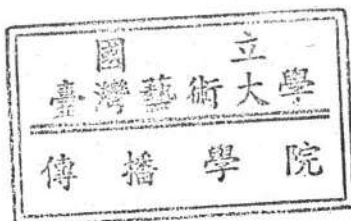 國立
臺灣藝術大學
傳播學院